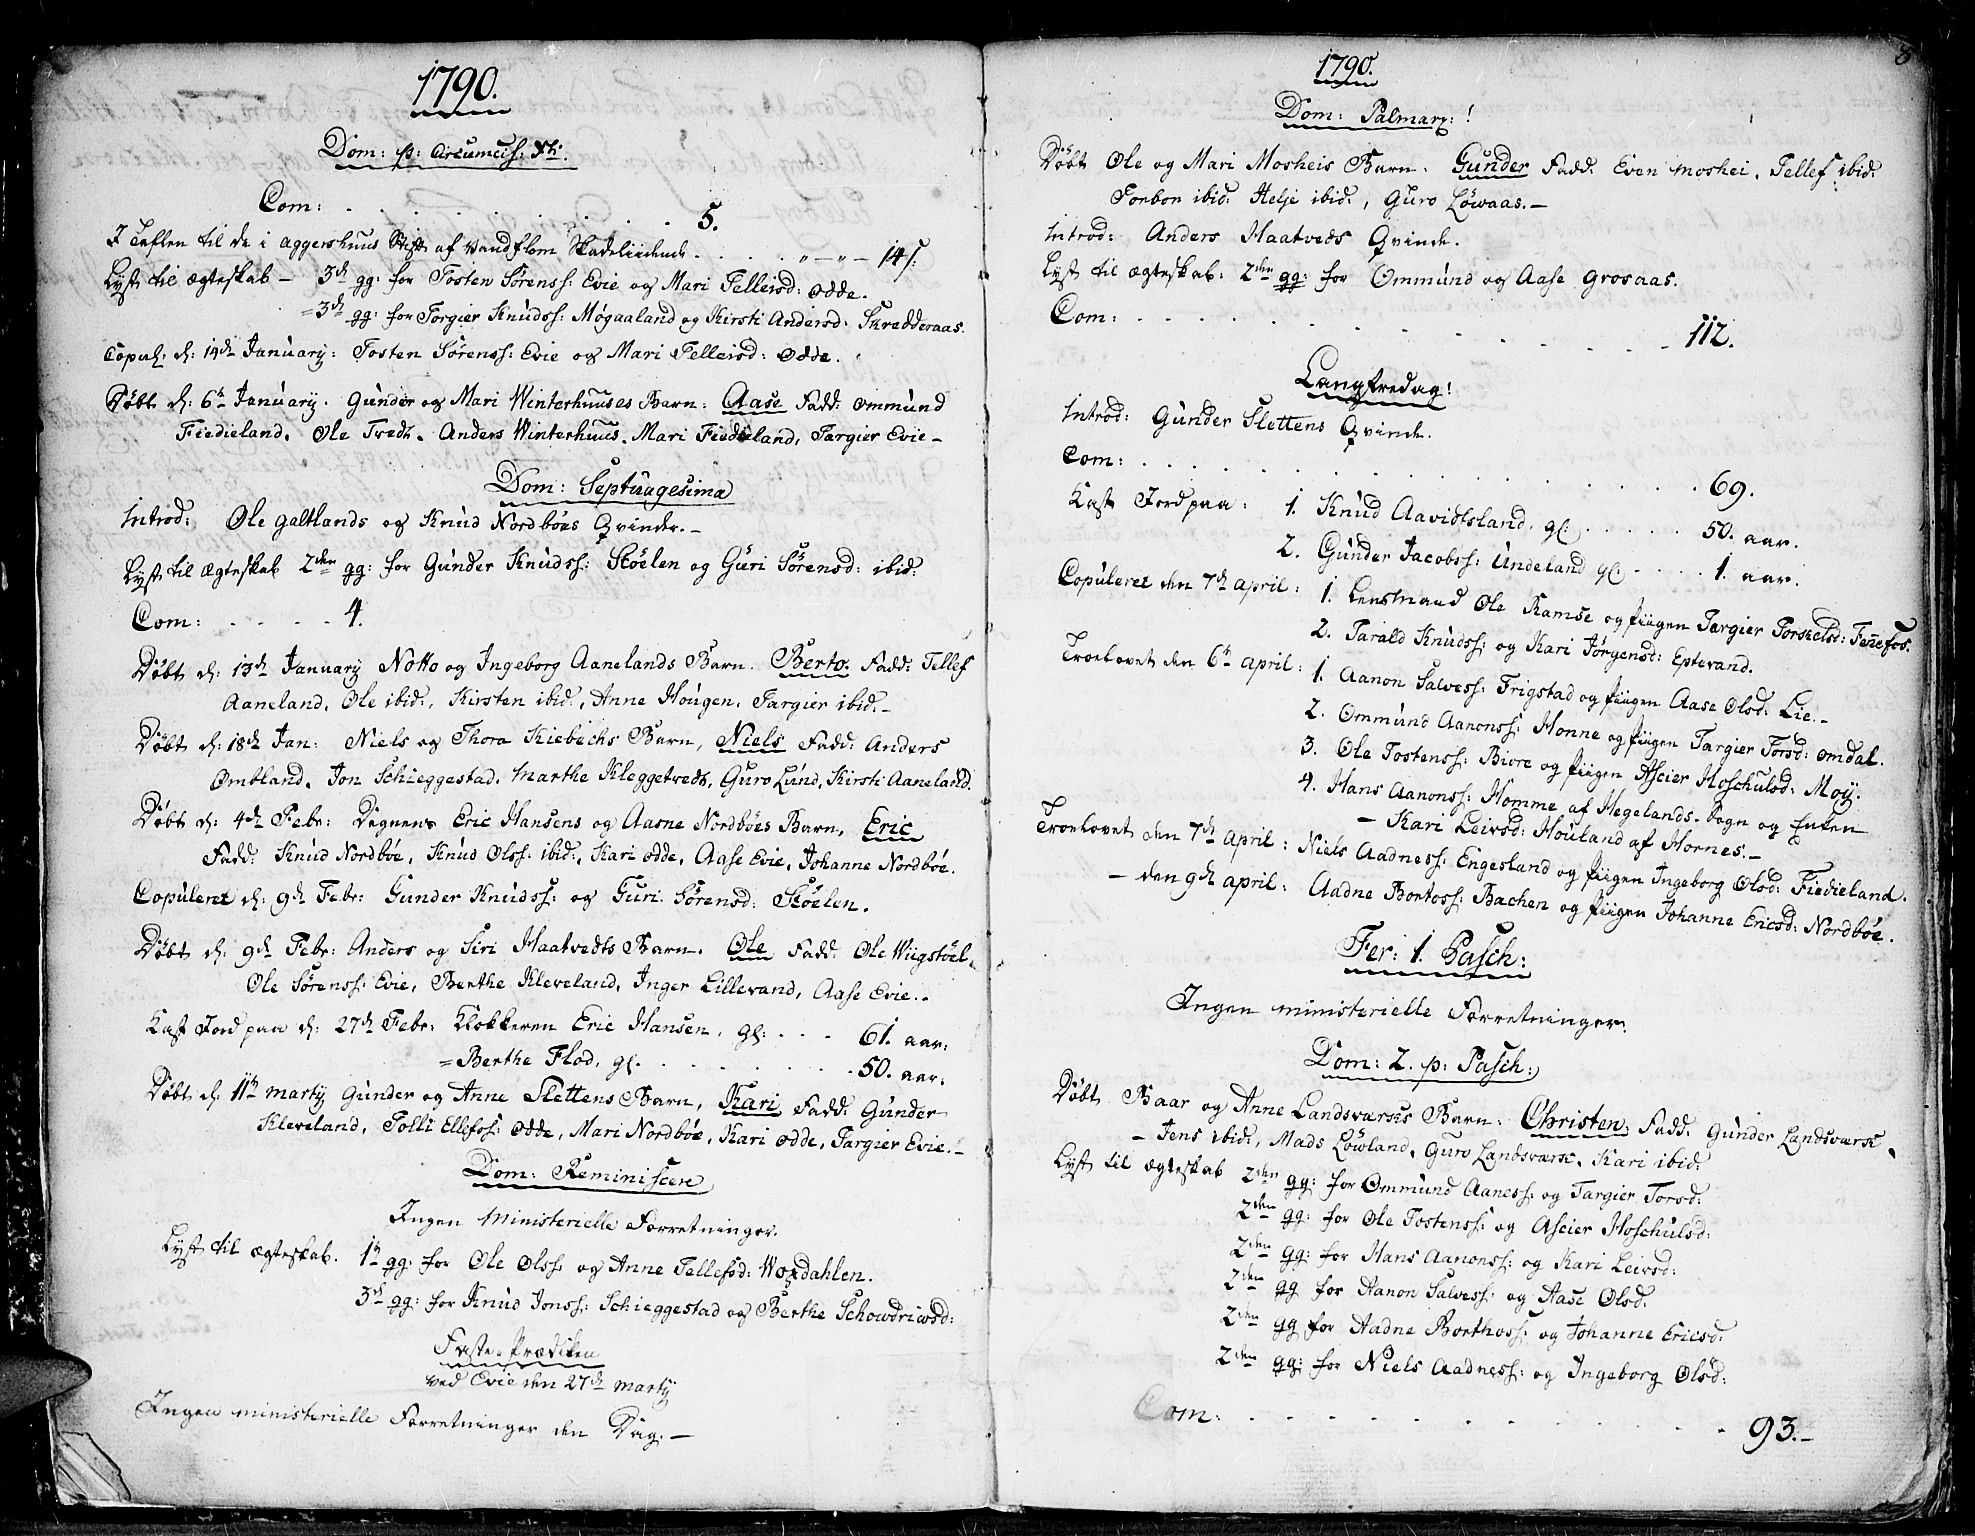 1790.
Dom: p: Circumcis: Xti.
Com: . . . . . . . . . 5.
I Taflen til de i Aggershuus Stift af Vandflom Skadeliidende . . . . „—„— 14 s.
Lyst til Ægteskab — 3de gg: for Tosten Sørenss: Evie og Mari Telleisd: Odde.
= 3de gg: for Torgier Knudss: Møgaaland og Kirsti Andersd: Skredderaas.
Copul: d: 14de January: Tosten Sørenss: Evie og Mari Telleisd: Odde.
Døbt d: 6te January. Gunder og Mari Winterhuuses Barn: Aase Fadd: Ommund
Fiedieland. Ole Tvedt. Anders Winterhuus. Mari Fiedieland, Targier Evie —
Dom: Septuagesima
Introd: Ole Galtlands og Knud Nordbøes Qvinder. —
Lyst til Ægteskab 2den gg: for Gunder Knudss: Støelen og Guri Sørensd: ibid:
Com: . . . . . 4.
Døbt d: 13de January Notto og Ingeborg Aanelands Barn. Berto. Fadd: Tellef
Aaneland, Ole ibid:, Kirsten ibid:, Anne Hougen. Targier ibid: —
Døbt d: 18de Jan: Niels og Thora Kiebechs Barn, Niels Fadd: Anders
Omtland. Jon Schieggestad. Marthe Kleggetvedt, Guro Lund, Kirsti Aaneland.
Døbt d: 4de Febr: Degnens Eric Hansens og Aasne Nordbøes Barn, Eric
Fadd: Knud Nordbøe, Knud Olss: ibid:, Kari Odde, Aase Evie, Johanne Nordbøe.
Copuleret d: 9de Febr: Gunder Knudss: og Guri Sørensd: Støelen.
Døbt d: 9de Febr: Anders og Siri Haatvedts Barn. Ole Fadd: Ole Wiigstøel,
Ole Sørenss: Evie, Berthe Kleveland, Inger Lillevand, Aase Evie. —
Kast Jord paa d: 27de Febr: Klokkeren Eric Hansen, gl: . . . 61. aar:
= Berthe Flod, gl: . . . . . . . . 50. aar:
Døbt d: 11te Marty Gunder og Anne Slettens Barn, Kari Fadd: Gunder
Kleveland, Tolli Ellefss: Odde, Mari Nordbøe, Kari Odde, Targier Evie. —
Dom: Reminiscere
Ingen Ministerielle Forretninger.
Lyst til Ægteskab. 1te gg: for Ole Olss: og Anne Tellefsd: Woxdahlen.
3de gg: for Knud Jonss: Schieggestad og Berthe Schowdriwsd:
Faste-Prædiken
ved Evie den 27de Marty
Ingen ministerielle Forretninger den Dag. —
8
1790.
Dom: Palmarz: !
Døbt Ole og Mari Mosheis Barn. Gunder Fadd: Even Moshei, Tellef ibid:
Torbor ibid: Helje ibid:, Guro Løwaas. —
Introd: Anders Haatveds Qvinde.
Lyst til Ægteskab: 2den gg: for Ommund og Aase Grosaas.
Com: . . . . . . . . . . . . 112.
Langfredag!
Introd: Gunder Slettens Qvinde.
Com: . . . . . . . . . . . . 69.
Kast Jord paa: 1. Knud Aavidtsland, gl: . . . . . 50. aar.
2. Gunder Jacobss: Undeland gl: . . . . 1. aar.
Copuleret den 7de April: 1. Lensmand Ole Ramse og Piigen Targier Torkelsd: Fennefos.
2. Tarald Knudss: og Kari Jørgensd: Eptevand.
Troelovet den 6te April: 1. Aanon Salvess: Frigstad og Piigen Aase Olsd: Lie. —
2. Ommund Aanonss: Honne og Piigen Targier Torsd: Omdal.
3. Ole Tostenss: Biore og Piigen Ascier Hoschulsd: Moy.
4. Hans Aanonss: Homme af Hegelands-Sogn og Enken
— Kari Leivsd: Houland af Hornes. —
Troelovet den 7de April: Niels Aadness: Engesland og Piigen Ingeborg Olsd: Fiedieland.
— den 9de April: Aadne Bertoss: Bachen og Piigen Johanne Ericsd: Nordbøe.
Fer: 1. Pasch:
Ingen ministerielle Forretninger.
Dom: 2. p: Pasch:
Døbt Baar og Anne Landsværks Barn: Christen, Fadd: Gunder Landsværk,
— Jens ibid:, Mads Løwland, Guro Landsværk, Kari ibid:
Lyst til Ægteskab 2den gg: for Ommund Aaness: og Targier Torsd:
2den gg: for Ole Tostenss: og Ascier Hoschulsd:
2den gg: for Hans Aanonss: og Kari Leivsd:
2den gg for Aanon Salvess: og Aase Olsd.
2den gg for Aadne Berthoss: og Johanne Ericsd:
2den gg: for Niels Aadness: og Ingeborg Olsd:
Com: . . . . . . . . . . . 93. —